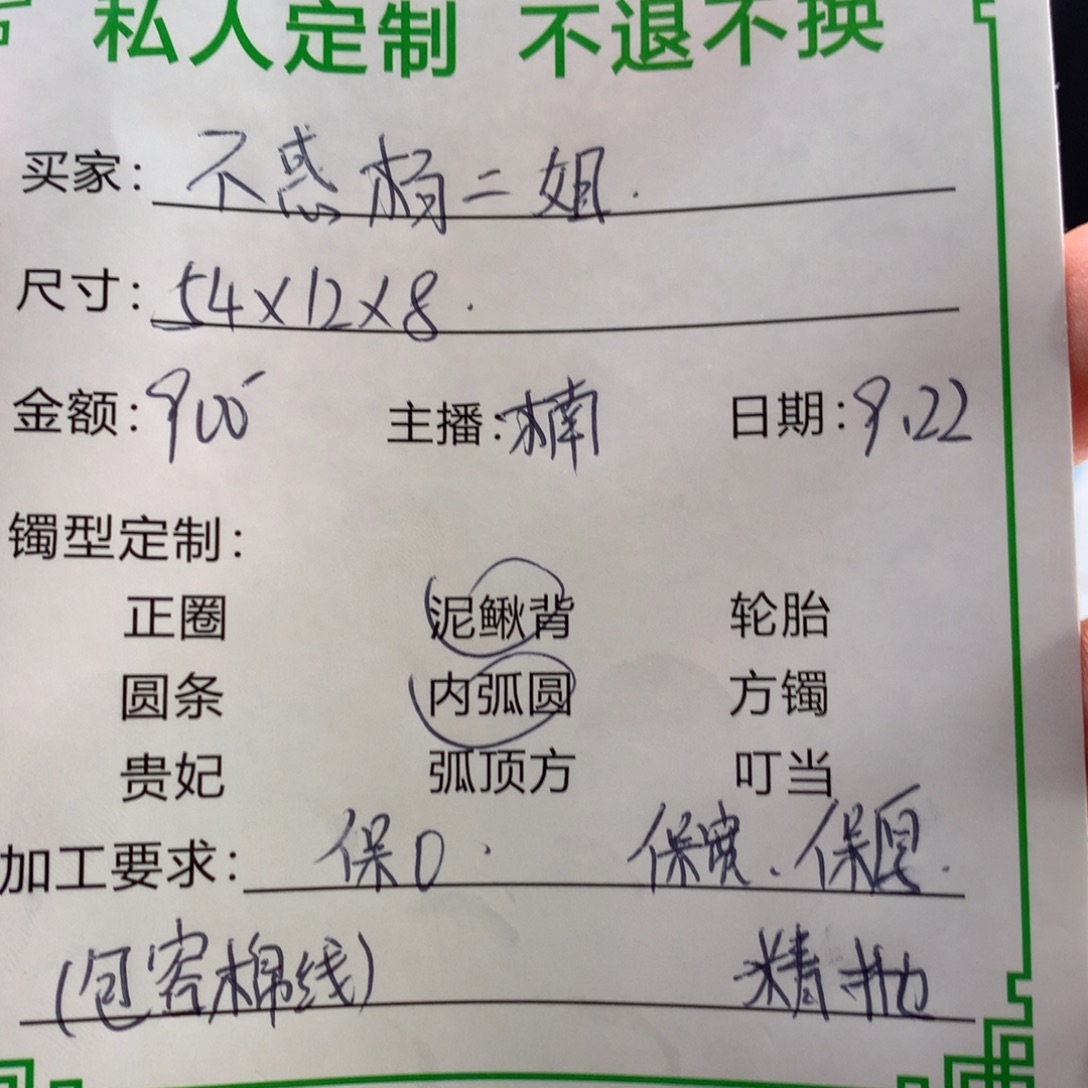 私人定制 不退不换
买家: 不惑杨二姐.
尺寸: 54×12×8.
金额: 900 主播: 楠 日期: 9.22
镯型定制:
正圈 泥鳅背 轮胎
圆条 内弧圆 方镯
贵妃 弧顶方 叮当
加工要求: 保0. 保宽.保厚.
(包容棉线) 精抛